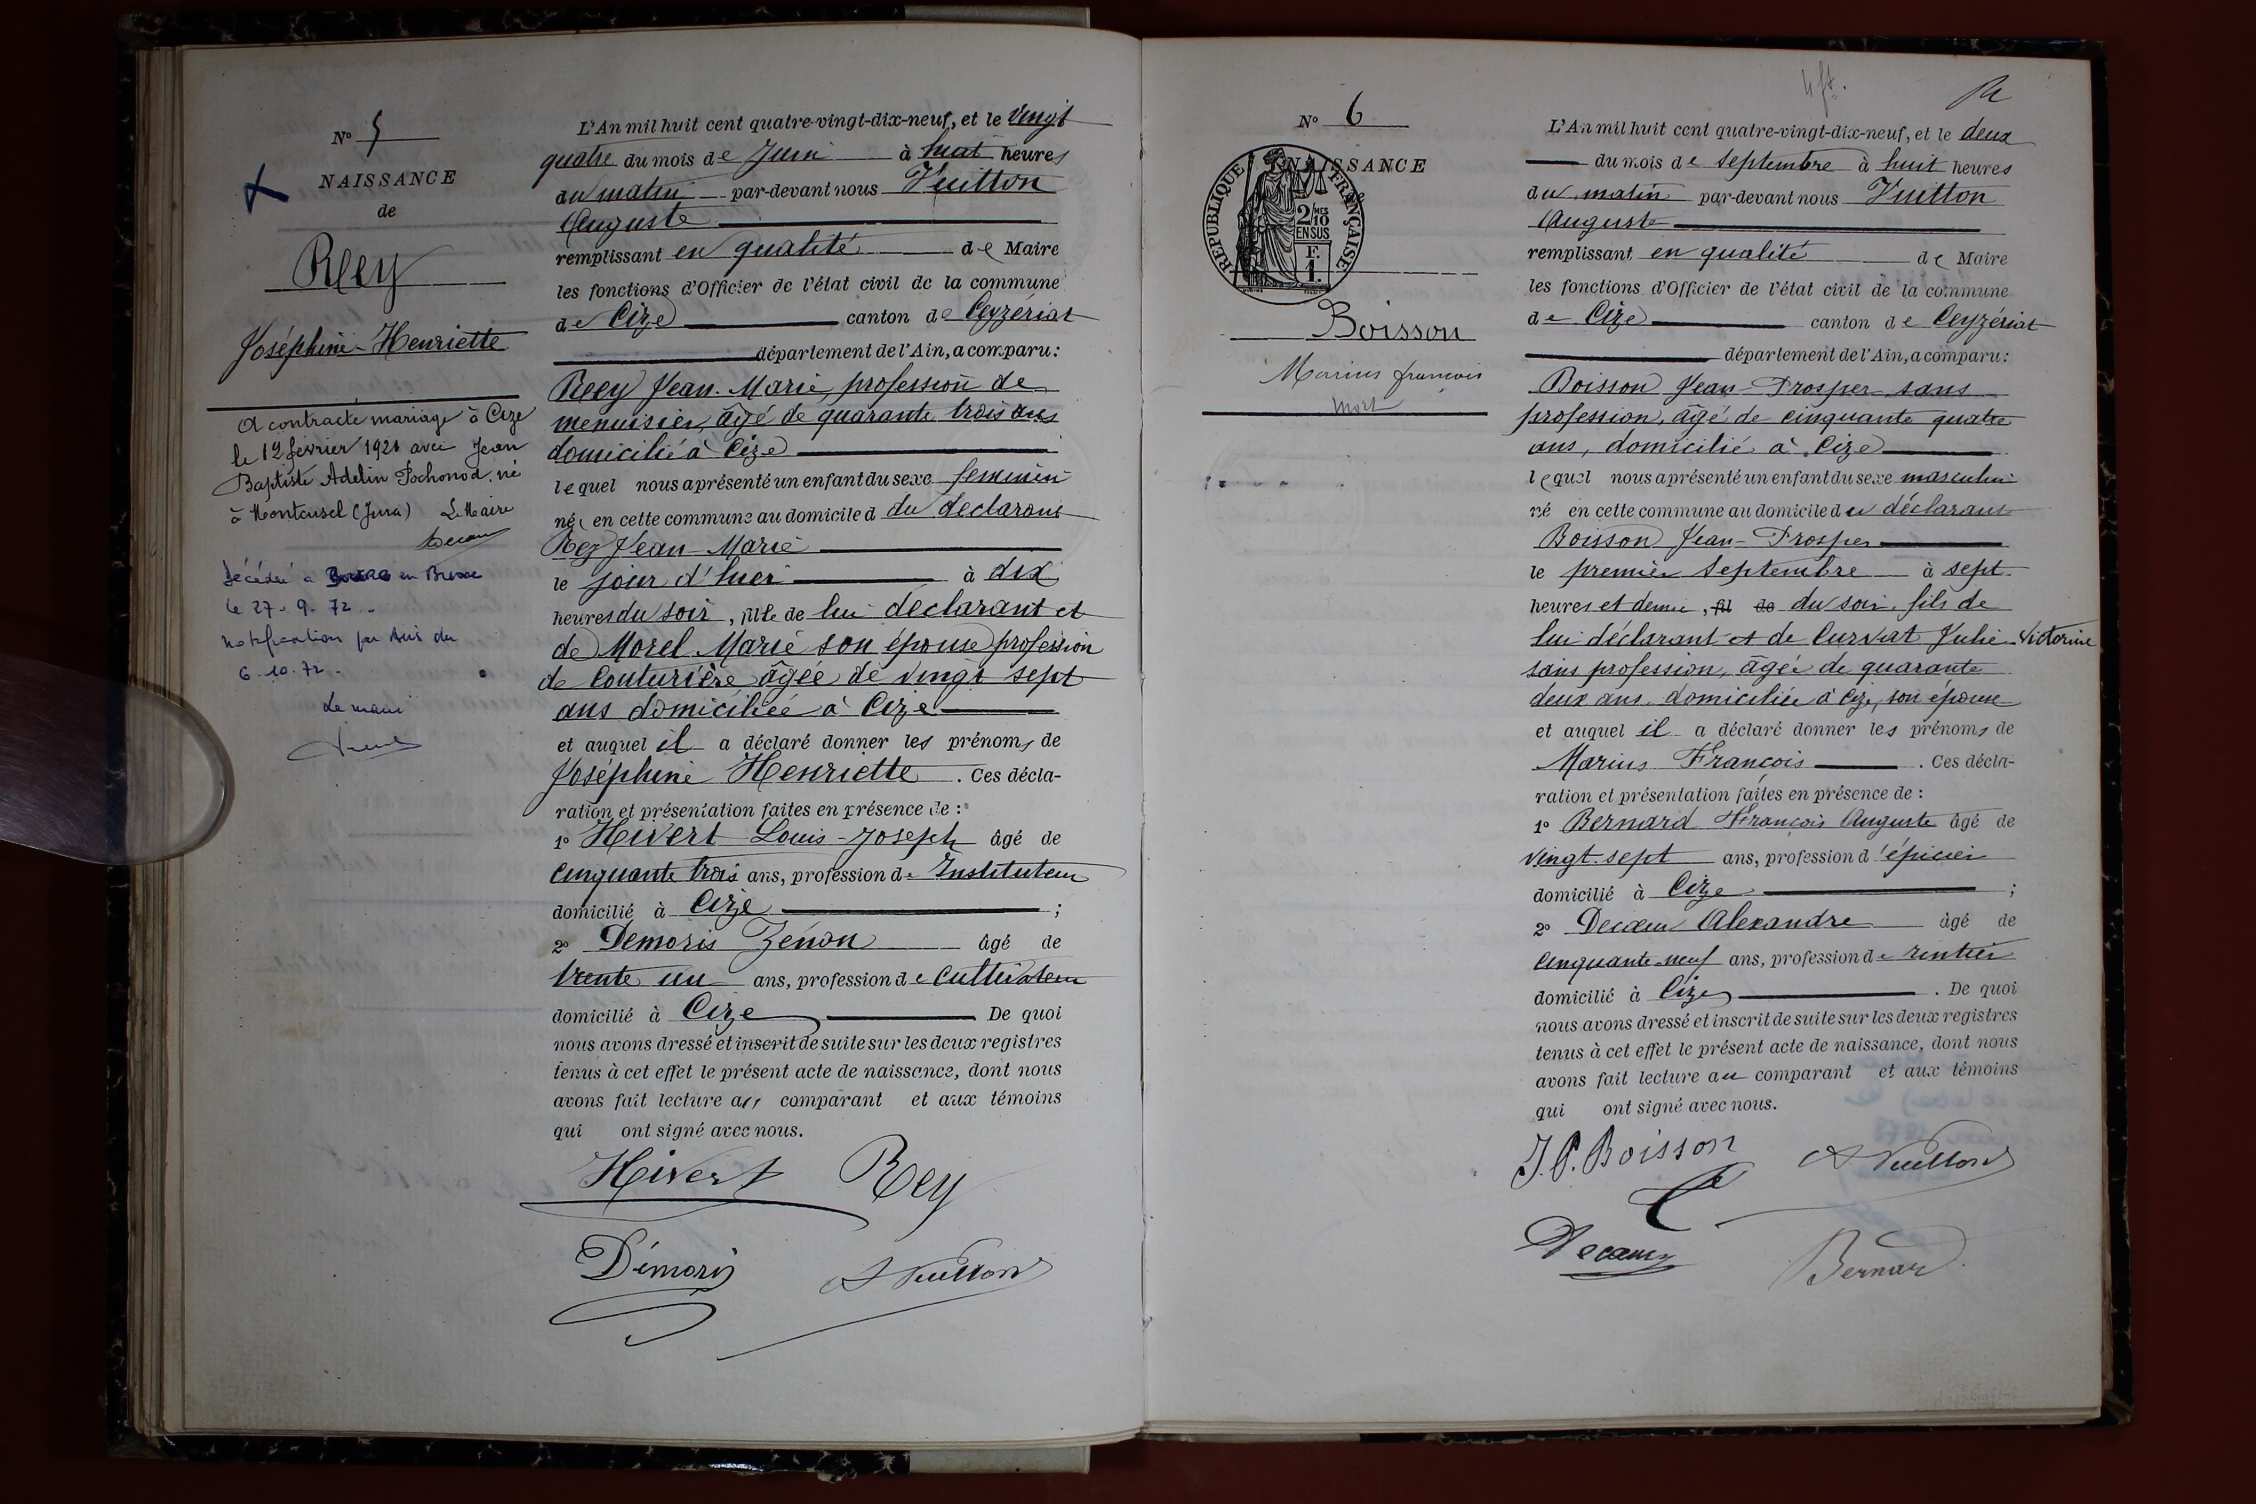 N° 5
NAISSANCE
de
Rey
Joséphine-Henriette
A contracté mariage à Cize
le 12 février 1921 avec Jean
Baptiste Adelin Pochonod, né
à Montcusel (Jura) Le Maire
Décédée à Bourg en Bresse
le 27-9-72
notification par Avis du
6-10-72-
Le maire
L'An mil huit cent quatre-vingt-dix-neuf, et le vingt
quatre du mois de Juin à huit heures
du matin par-devant nous Vuitton
Auguste
remplissant en qualité de Maire
les fonctions d'Officier de l'état civil de la commune
de Cize canton de Ceyzériat
département de l'Ain, a comparu:
Rey Jean-Marie, profession de
menuisier, âgé de quarante trois ans
domicilié à Cize
lequel nous a présenté un enfant du sexe féminin
né, en cette commune au domicile d du déclarant
Rey Jean-Marie
le jour d'hier à dix
heures du soir, fille de lui déclarant et
de Morel Marie son épouse profession
de Couturière âgée de vingt sept
ans domiciliée à Cize
et auquel il a déclaré donner les prénoms de
Joséphine Henriette. Ces décla-
ration et présentation faites en présence de :
1° Hivert Louis-Joseph âgé de
cinquante trois ans, profession d' Instituteur
domicilié à Cize ;
2° Demoris Zénon âgé de
trente un ans, profession de cultivateur
domicilié à Cize De quoi
nous avons dressé et inscrit de suite sur les deux registres
tenus à cet effet le présent acte de naissance, dont nous
avons fait lecture au comparant et aux témoins
qui ont signé avec nous.
Hivert Rey
Démoris A Vuitton
4 ft.
N° 6
NAISSANCE
REPUBLIQUE FRANÇAISE
2/10 MES
EN SUS
F.
1.
Boisson
Marius françois
mort
L'An mil huit cent quatre-vingt-dix-neuf, et le deux
du mois de Septembre à huit heures
du matin par-devant nous Vuitton
Auguste
remplissant en qualité de Maire
les fonctions d'Officier de l'état civil de la commune
de Cize canton de Ceyzériat
département de l'Ain, a comparu:
Boisson Jean-Prosper sans
profession, âgé de cinquante quatre
ans, domicilié à Cize
lequel nous a présenté un enfant du sexe masculin
né en cette commune au domicile du déclarant
Boisson Jean-Prosper
le premier Septembre à sept
heures et demie, fil de du soir, fils de
lui déclarant et de Curvat Julie-Victorine
sans profession, âgée de quarante
deux ans domiciliée à Cize, son épouse
et auquel il a déclaré donner les prénoms de
Marius François. Ces décla-
ration et présentation faites en présence de :
1° Bernard François Auguste âgé de
vingt-sept ans, profession d'épicier
domicilié à Cize ;
2° Decœur Alexandre âgé de
cinquante-neuf ans, profession de rentier
domicilié à Cize. De quoi
nous avons dressé et inscrit de suite sur les deux registres
tenus à cet effet le présent acte de naissance, dont nous
avons fait lecture au comparant et aux témoins
qui ont signé avec nous.
J. P. Boisson A Vuitton
Decœur Bernard